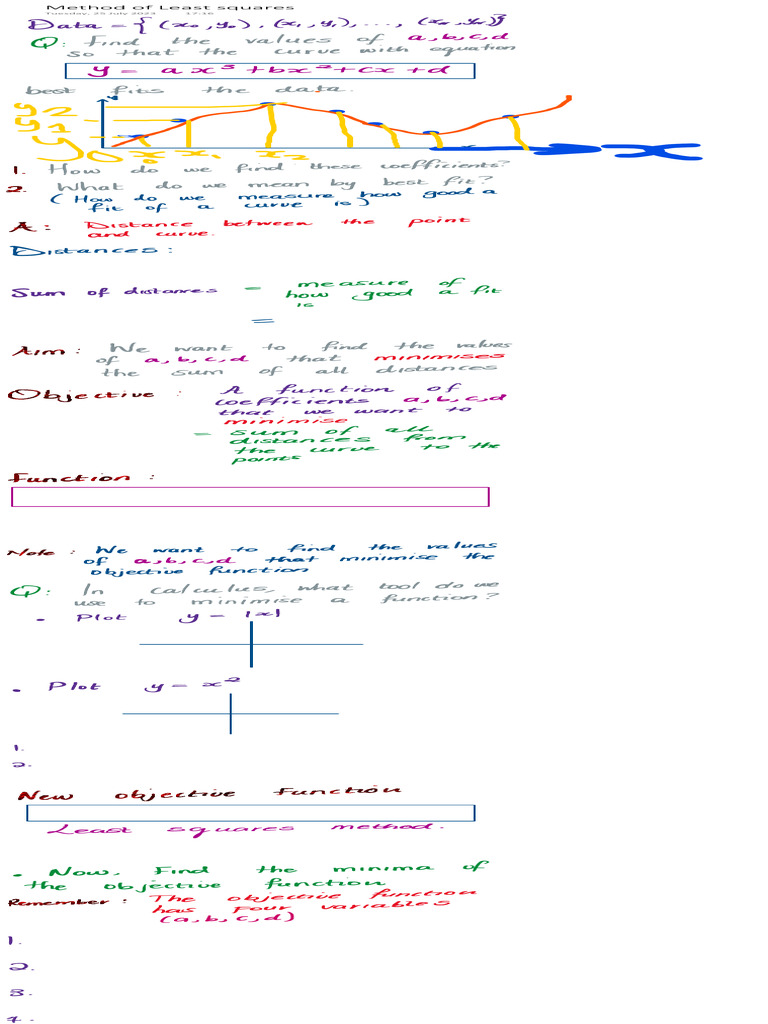 Method of Least squares
Tuesday, 25 July 2023 17:16
Data = { (x₀, y₀), (x₁, y₁), ..., (xₙ, yₙ)}
Q: Find the values of a, b, c, d
so that the curve with equation
y = ax³ + bx² + cx + d
best fits the data.
y
y2
y1
y0
x0 x1 x2
x
x
1. How do we find these coefficients?
2. What do we mean by best fit?
(How do we measure how good a
fit of a curve is)
A: Distance between the point
and curve.
Distances:
Sum of distances = measure of
how good a fit
is
=
Aim: We want to find the values
of a, b, c, d that minimises
the sum of all distances
Objective: A function of
coefficients a, b, c, d
that we want to
minimise
= sum of all
distances from
the curve to the
points
Function:
Note: We want to find the values
of a, b, c, d that minimise the
objective function
Q: In calculus, what tool do we
use to minimise a function?
• Plot y = |x|
• Plot y = x²
1.
2.
New objective Function
Least squares method.
• Now, Find the minima of
the objective function
Remember: The objective function
has Four variables
(a, b, c, d)
1.
2.
3.
4.